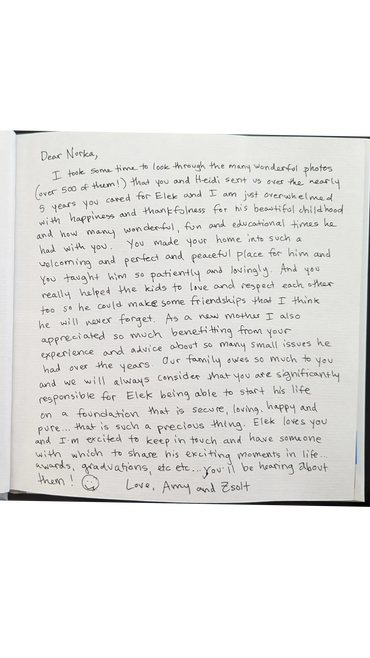 Dear Norka,
I took some time to look through the many wonderful photos
(over 500 of them!) that you and Heidi sent us over the nearly
5 years you cared for Elek and I am just overwhelmed
with happiness and thankfulness for his beautiful childhood
and how many wonderful, fun and educational times he
had with you. You made your home into such a
welcoming and perfect and peaceful place for him and
you taught him so patiently and lovingly. And you
really helped the kids to love and respect each other
too so he could make some friendships that I think
he will never forget. As a new mother I also
appreciated so much benefitting from your
experience and advice about so many small issues he
had over the years. Our family owes so much to you
and we will always consider that you are significantly
responsible for Elek being able to start his life
on a foundation that is secure, loving, happy and
pure... that is such a precious thing. Elek loves you
and I'm excited to keep in touch and have someone
with which to share his exciting moments in life...
awards, graduations, etc etc... you'll be hearing about
them! ☺ Love, Amy and Zsolt